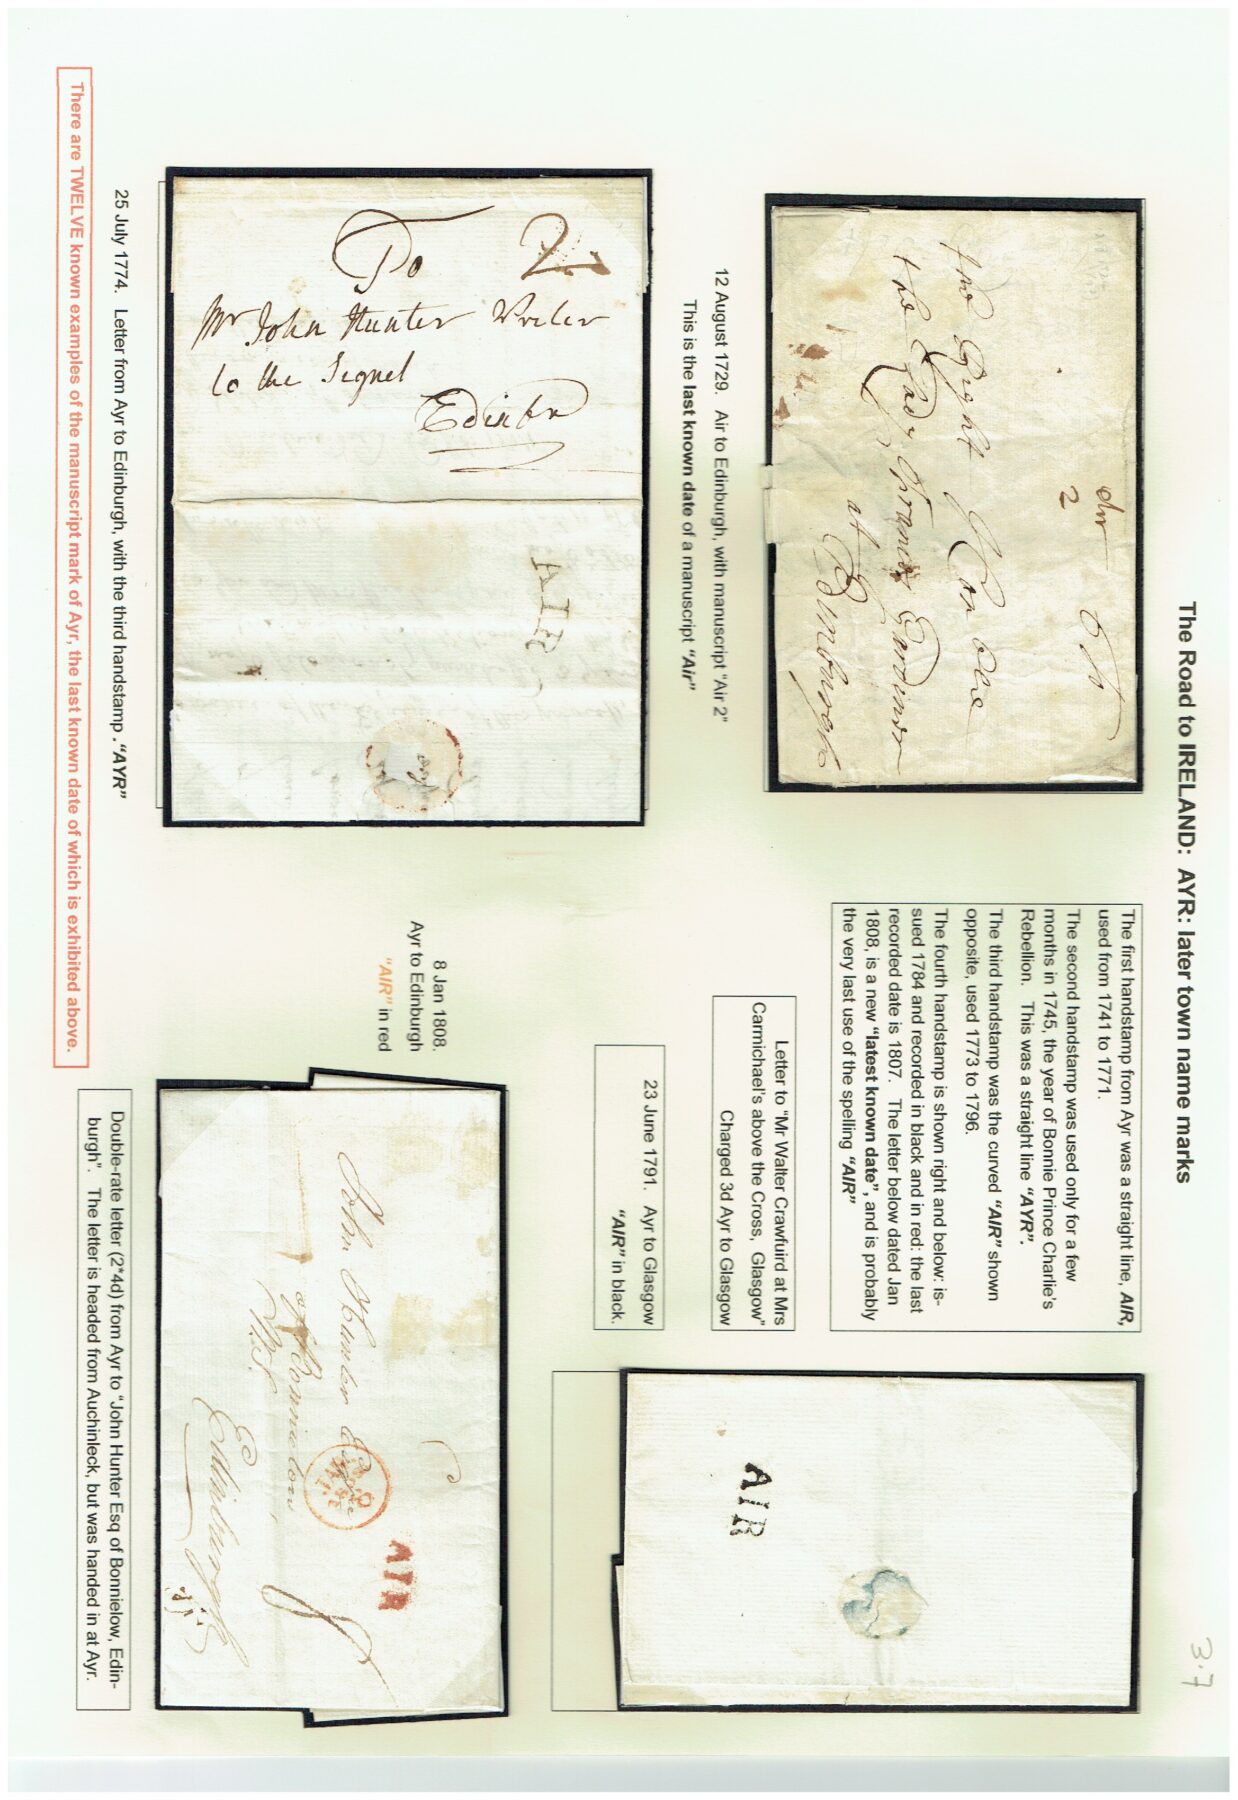 The Road to IRELAND: AYR: later town name marks
3.7
Air
2
The Right Hon ble
the Lady Frances Gardiner
at Edinburgh
12 August 1729. Air to Edinburgh, with manuscript "Air 2"
This is the last known date of a manuscript "Air"
The first handstamp from Ayr was a straight line, AIR,
used from 1741 to 1771.
The second handstamp was used only for a few
months in 1745, the year of Bonnie Prince Charlie's
Rebellion. This was a straight line "AYR".
The third handstamp was the curved "AIR" shown
opposite, used 1773 to 1796.
The fourth handstamp is shown right and below: is-
sued 1784 and recorded in black and in red: the last
recorded date is 1807. The letter below dated Jan
1808, is a new "latest known date", and is probably
the very last use of the spelling "AIR"
Letter to "Mr Walter Crawfuird at Mrs
Carmichael's above the Cross, Glasgow"
Charged 3d Ayr to Glasgow
23 June 1791. Ayr to Glasgow
"AIR" in black.
AIR
2
To
Mr John Hunter Writer
to the Signet
Edinbr
AIR
25 July 1774. Letter from Ayr to Edinburgh, with the third handstamp . "AYR"
There are TWELVE known examples of the manuscript mark of Ayr, the last known date of which is exhibited above.
8 Jan 1808.
Ayr to Edinburgh
"AIR" in red
AIR
John Hunter Esqre
of Bonnielow
W.S.
Edinburgh
Double-rate letter (2*4d) from Ayr to "John Hunter Esq of Bonnielow, Edin-
burgh". The letter is headed from Auchinleck, but was handed in at Ayr.